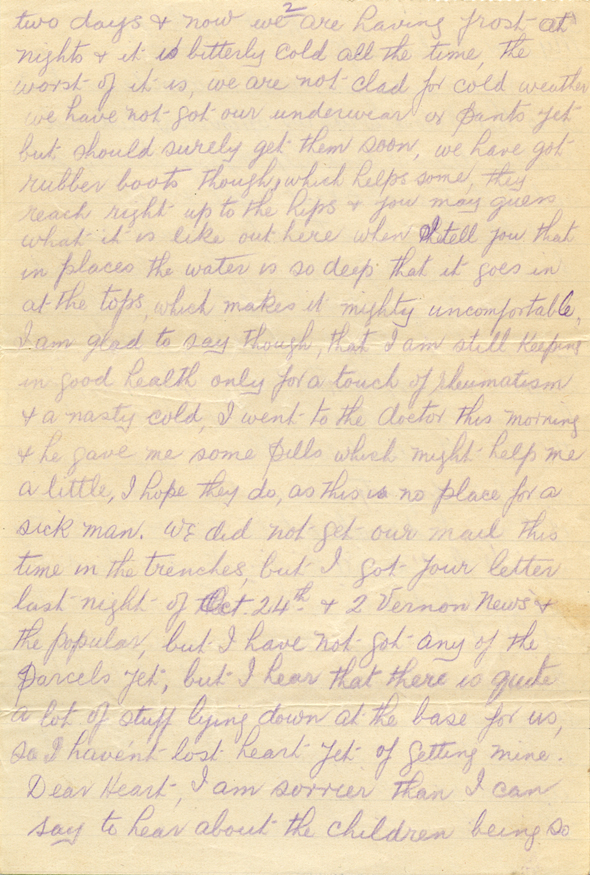 2
two days & now we are having frost at
nights & it is bitterly cold all the time, the
worst of it is, we are not clad for cold weather
we have not got our underwear or pants yet
but should surely get them soon, we have got
rubber boots though, which helps some, they
reach right up to the hips & you may guess
what it is like out here when I tell you that
in places the water is so deep that it goes in
at the tops, which makes it mighty uncomfortable,
I am glad to say though, that I am still keeping
in good health only for a touch of rheumatism
& a nasty cold, I went to the doctor this morning
& he gave me some pills which might help me
a little, I hope they do, as this is no place for a
sick man. We did not get our mail this
time in the trenches, but I got your letter
last night of Oct. 24th. & 2 Vernon News &
the popular, but I have not got any of the
parcels yet, but I hear that there is quite
a lot of stuff lying down at the base for us,
so I haven't lost heart yet of getting mine.
Dear Heart, I am sorrier than I can
say to hear about the children being so